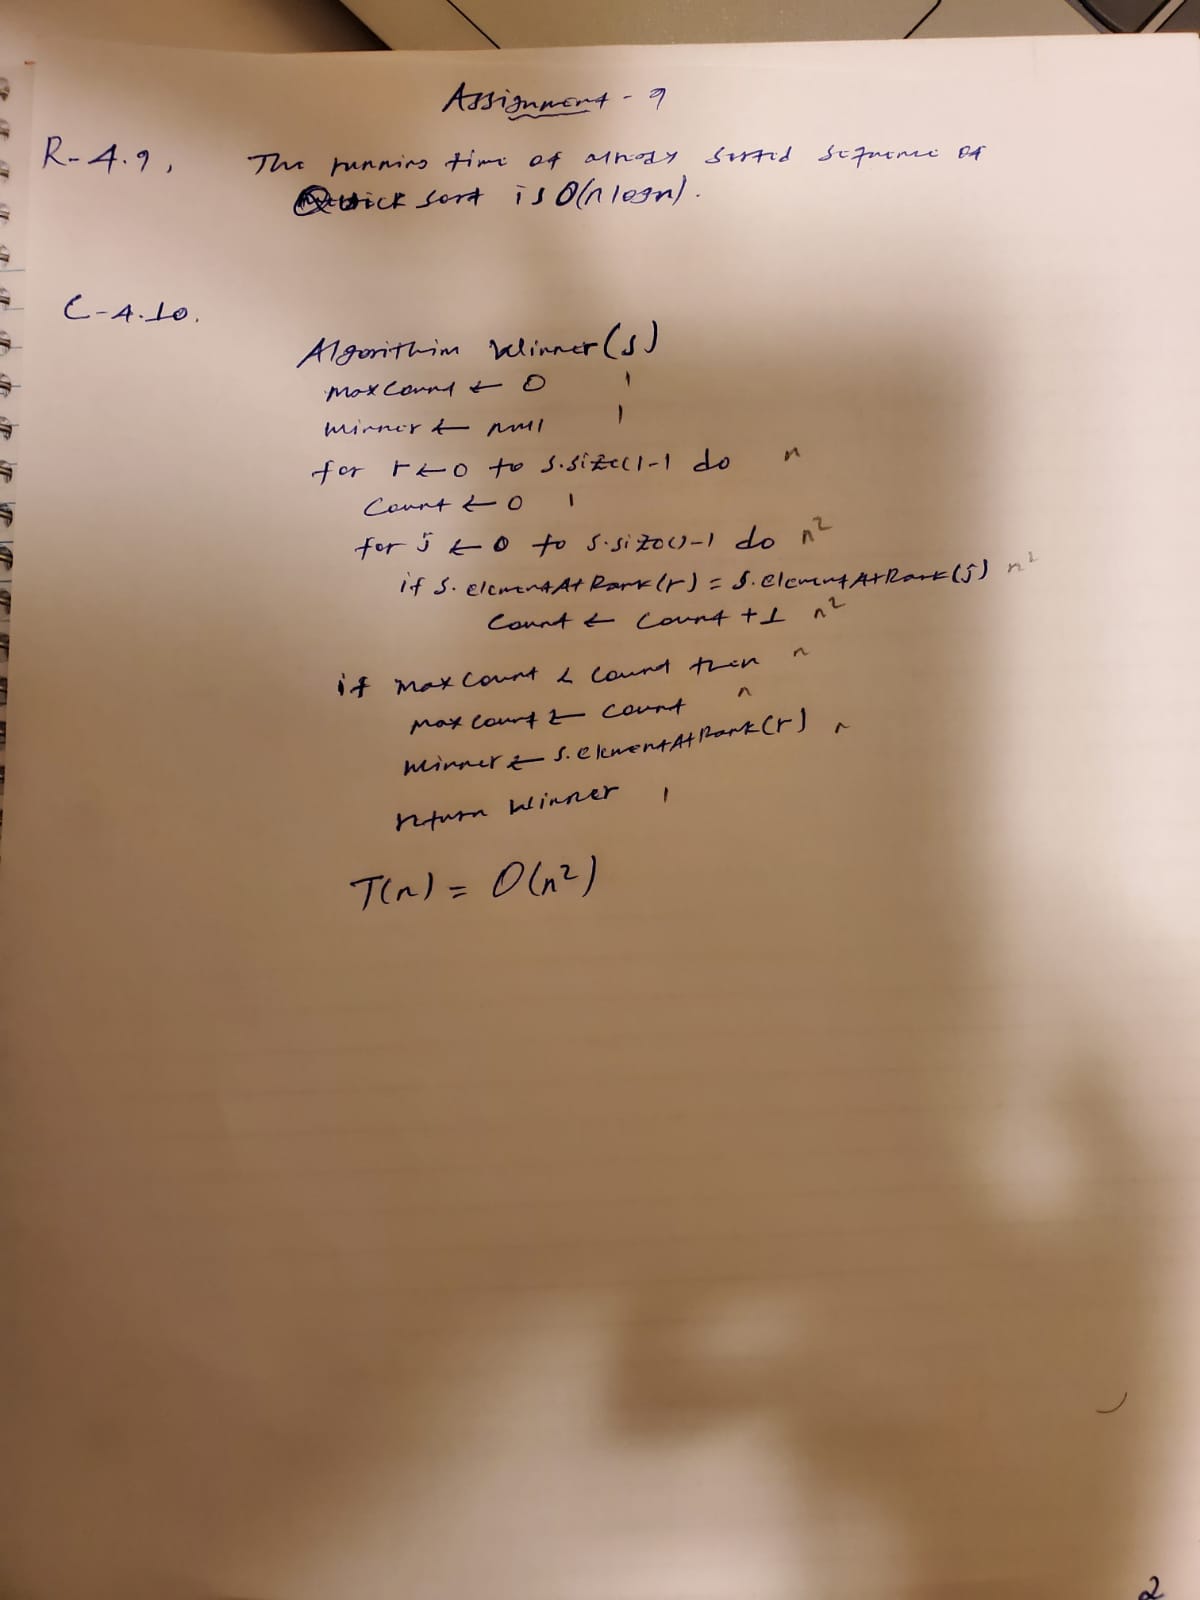 Assignment - 9
R-4.9, The running time of alredy sorted sequence of
Quick sort is O(n logn).
C-4.10.
Algorithim Winner(S)
maxCount ← 0 1
winner ← null 1
for r ← 0 to S.size()-1 do n
Count ← 0 1
for j ← 0 to S.size()-1 do n²
if S.elementAtRank(r) = S.elementAtRank(j) n²
Count ← Count + 1 n²
if maxCount < Count then n
maxCount ← Count n
Winner ← S.elementAtRank(r) n
return Winner 1
T(n) = O(n²)
2